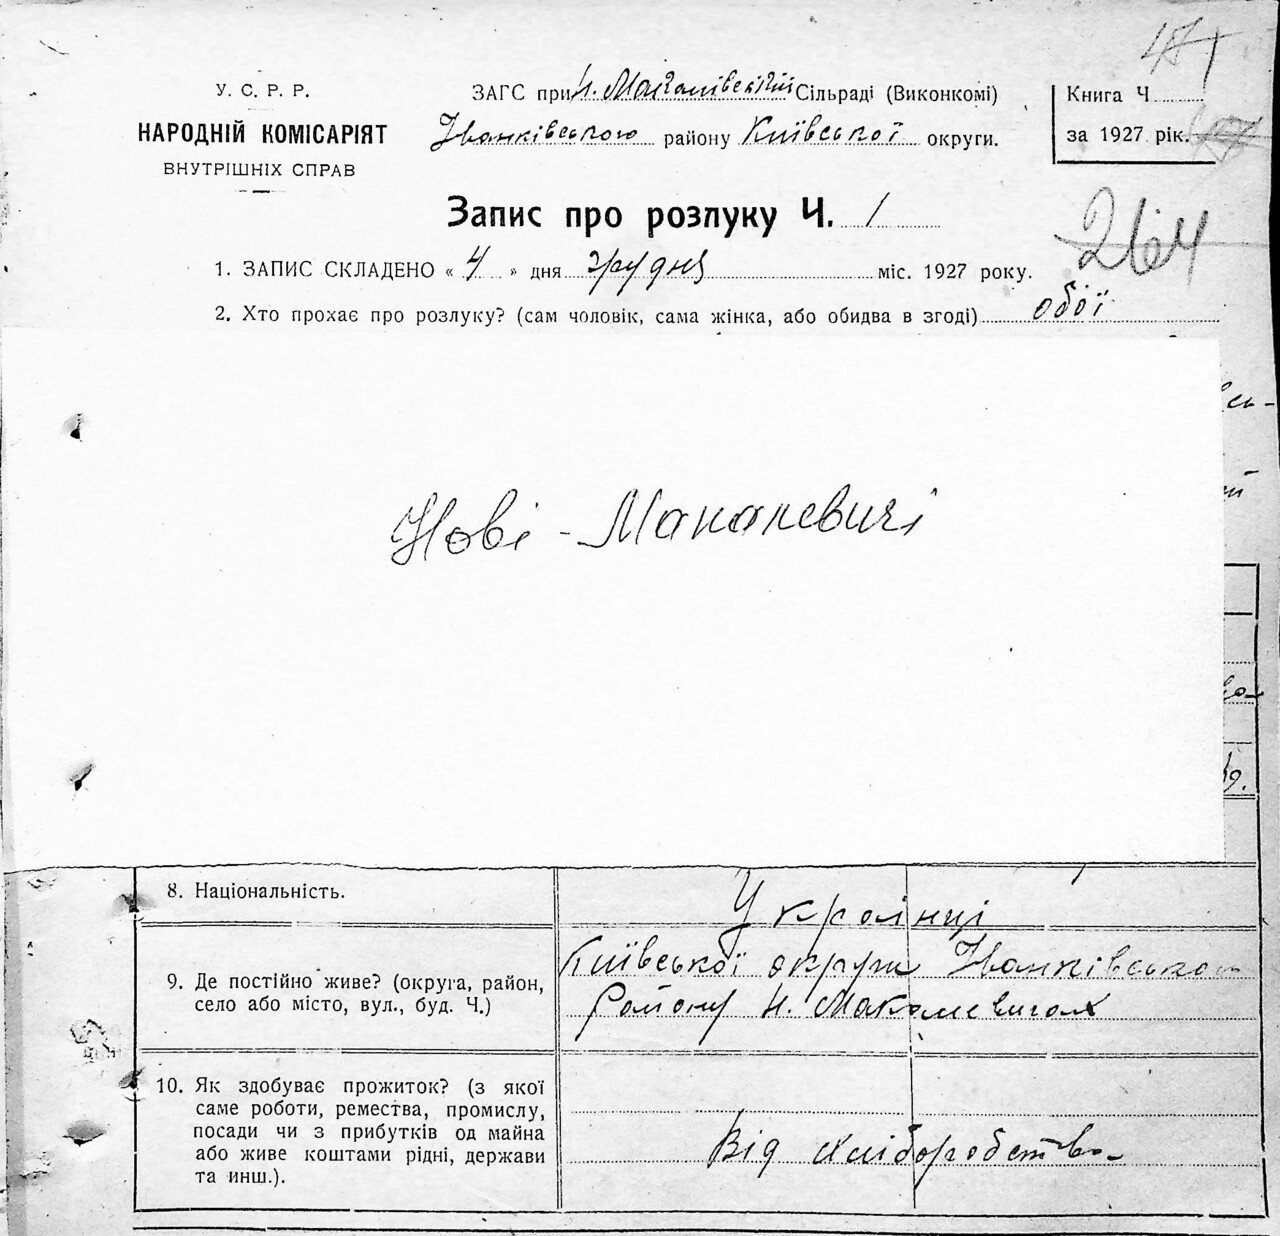 У. С. Р. Р.
НАРОДНІЙ КОМІСАРІЯТ
ВНУТРІШНІХ СПРАВ
ЗАГС при Н. Макалівській Сільраді (Виконкомі)
Іванківського району Київської округи.
Книга Ч.
за 1927 рік.
Запис про розлуку Ч. 1
264
1. ЗАПИС СКЛАДЕНО « 4 » дня грудня міс. 1927 року.
2. Хто прохає про розлуку? (сам чоловік, сама жінка, або обидва в згоді) обої
Нові-Макалевичі
8. Національність.
Українці
9. Де постійно живе? (округа, район,
село або місто, вул., буд. Ч.)
Київської округи Іванківського
Району Н. Макалевичах
10. Як здобуває прожиток? (з якої
саме роботи, ремества, промислу,
посади чи з прибутків од майна
або живе коштами рідні, держави
та инш.).
Від хліборобства